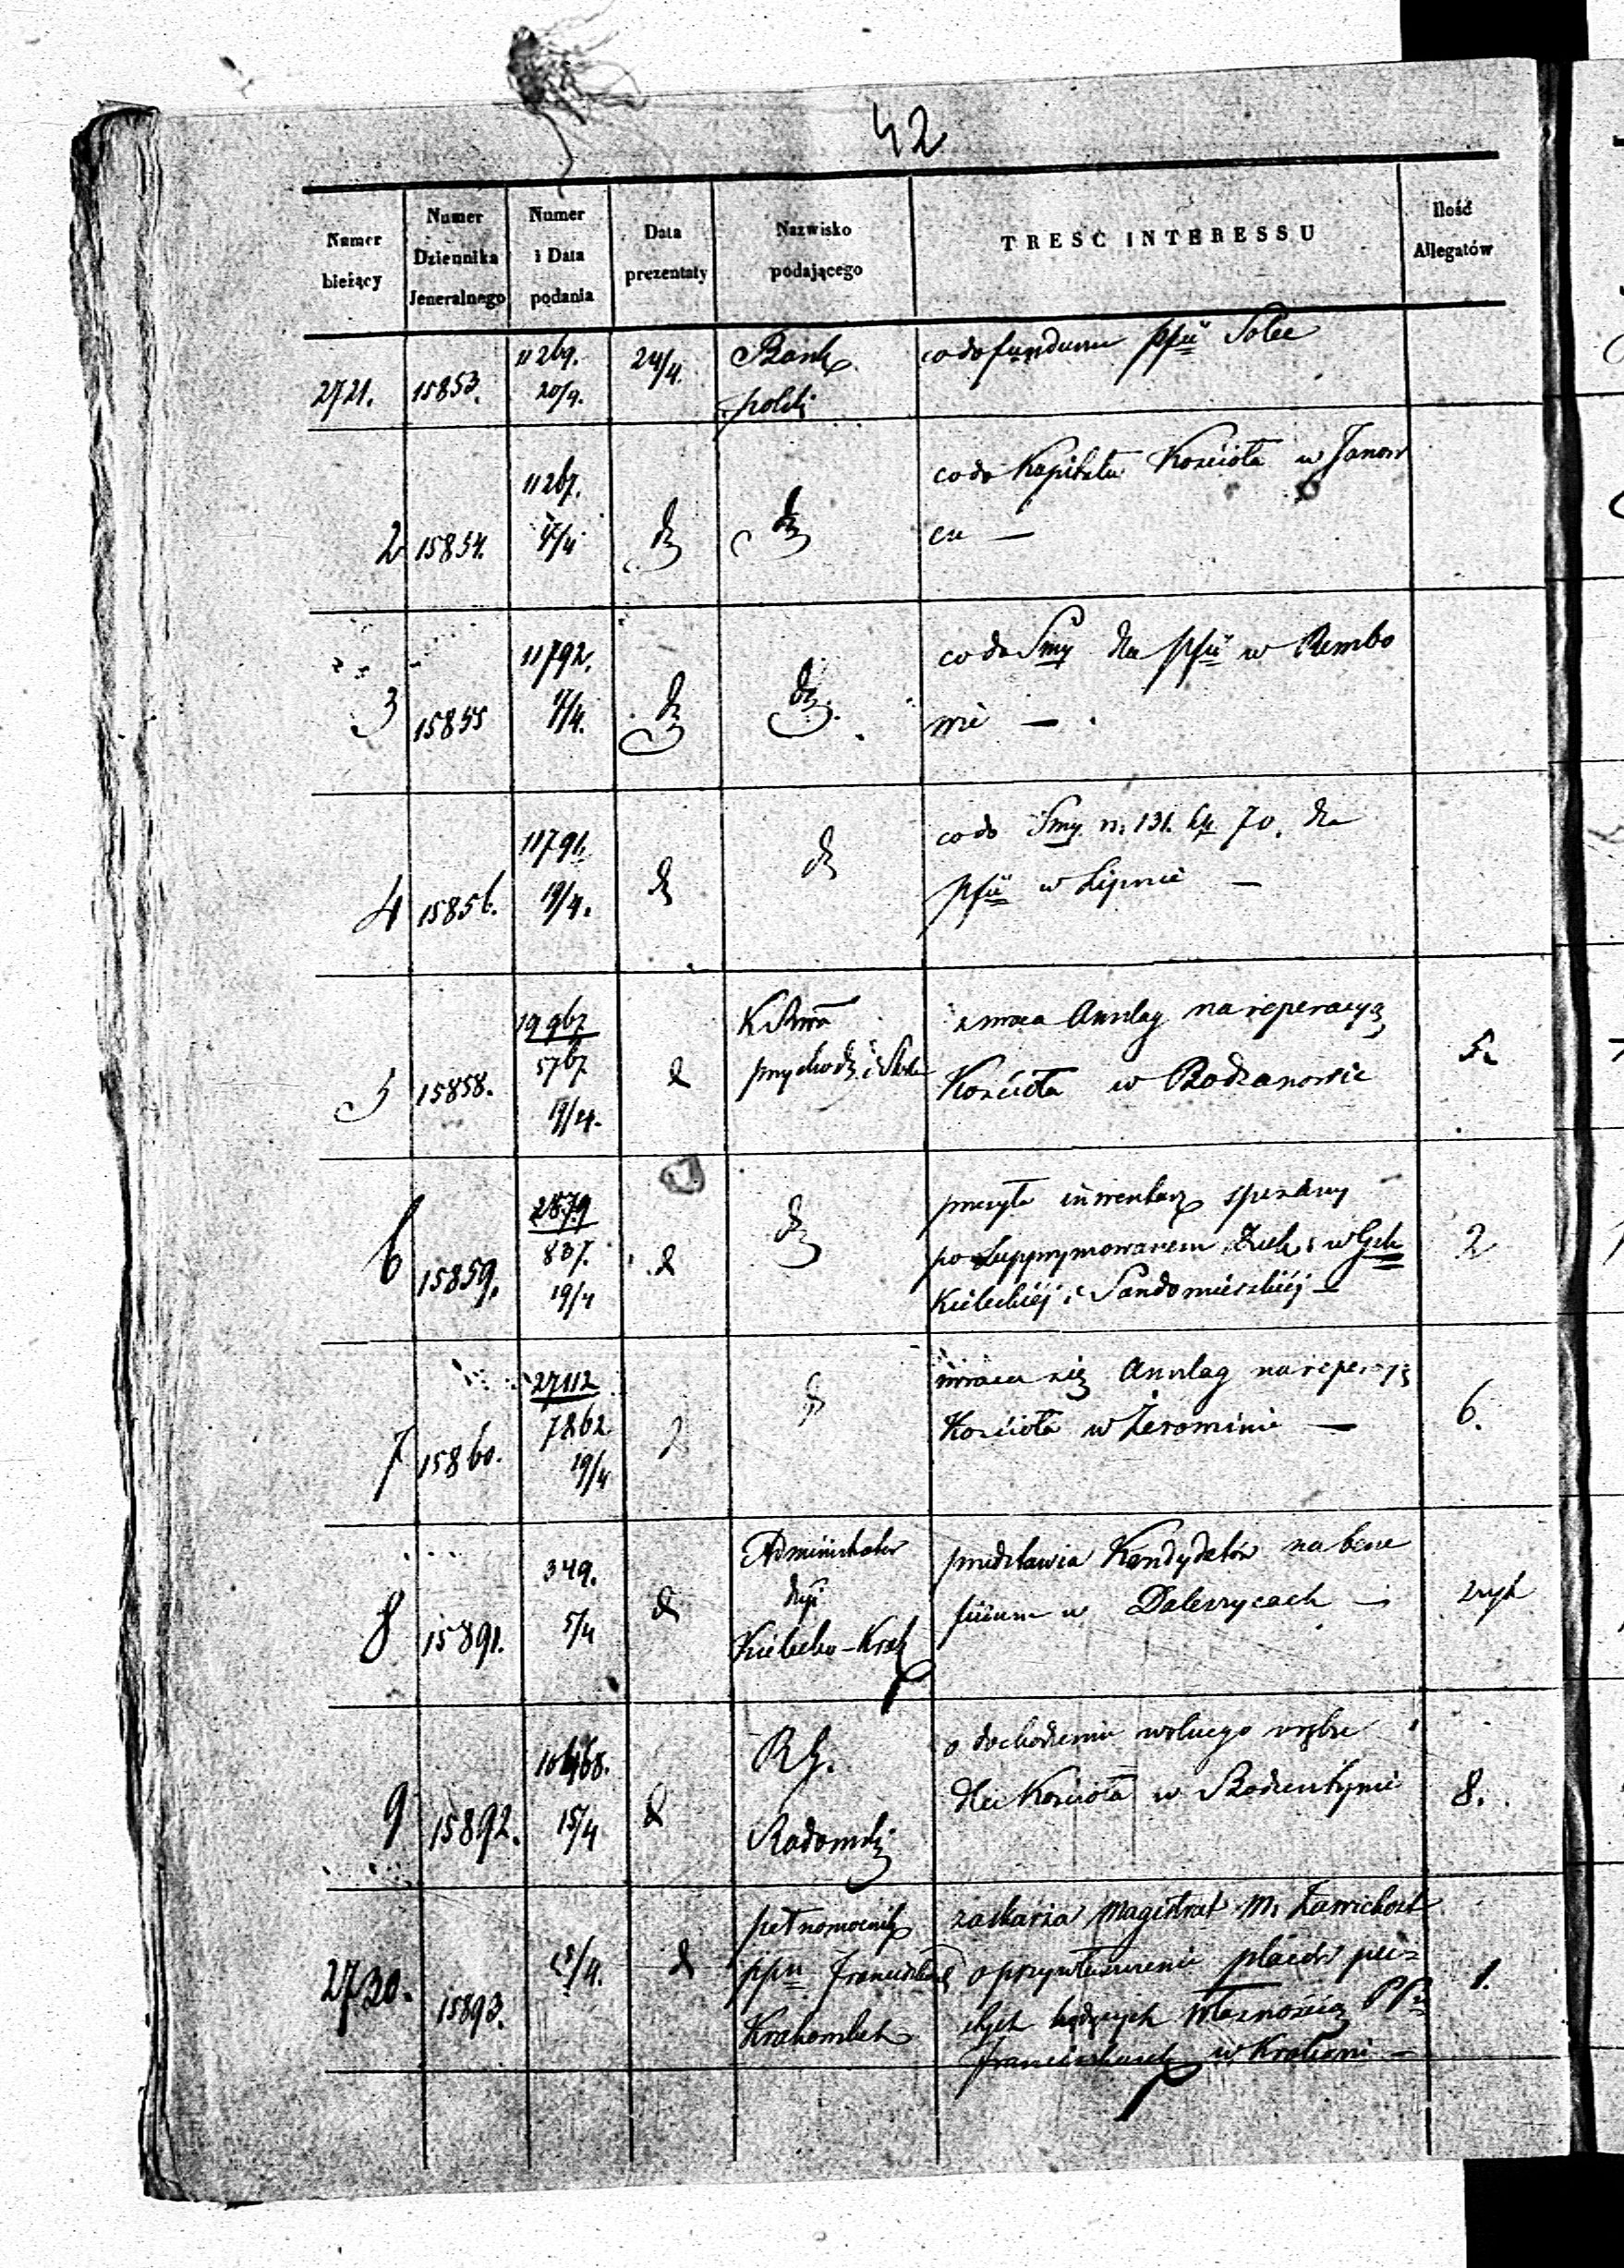 42
Numer bieżący
Numer Dziennika Jeneralnego
Numer i Data podania
Data prezentaty
Nazwisko podającego
TRESC INTERESSU
Ilość Allegatów
2721. 15853. 11269. 20/4. 24/4. Bank polski
co do funduszu Solec
2 15854. 11267. 17/4 dº dº
co do Kapitału Kościoła w Janow
cu —
3 15855 11792. 4. dº dº
co do Smy dla w Rembo
wie —
4 15856. 11791. 19/4. dº dº
co do Smy n. 131. k. 70. dla
w Lipnie —
5 15858. 19967 5767 19/4. d
zwraca Anszlag na reperacyą
Kościoła w Bodzanowie
5
6 15859. 2879 837. 19/4 d dº
przesyła inwentarz
po supprymowanem w Gub
Kieleckiej i Sandomierskiej —
2
7 15860. 27112 7862 19/4
zwraca się Anszlag na reperacyą
Kościoła w Żerominie —
6.
8 15891. 349. 5/4 d Administrator
Kielecko-Krak
przedstawia Kandydatów na bene
ficium w Daleszycach —
9 15892. 15/4 d R.G.
Radomski
o dochodzeniu wolnego wrębu
dla Kościoła w Bodzentynie
8.
2730. 15893. /4. d pełnomocnik
Franciszkanek
Krakowskich
zaskarża Magistrat M. Zawichost
o przywłaszczenie placów pu-
stych będących Własnością PP
Franciszkanek w Krakowie —
1.